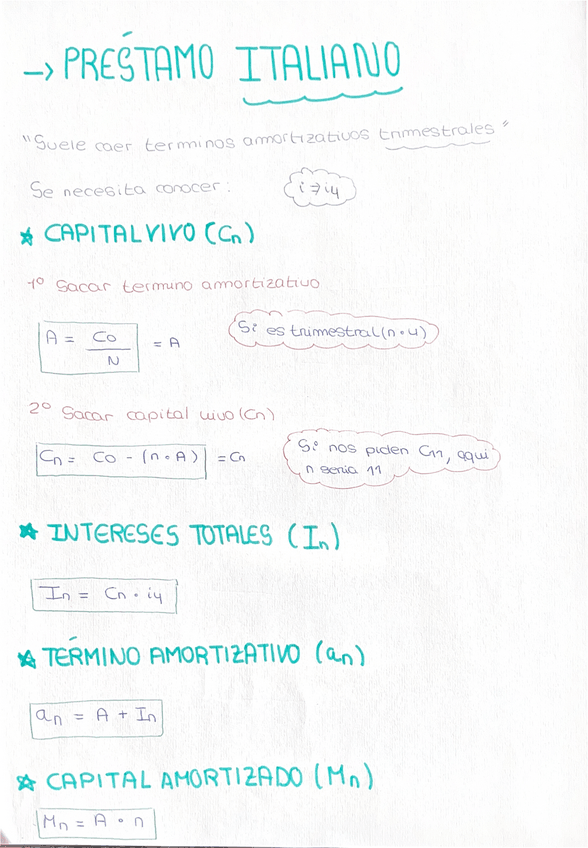 → PRÉSTAMO ITALIANO
"Suele caer terminos amortizativos trimestrales"
Se necesita conocer: i⇒i4
* CAPITAL VIVO (Cn)
1º Sacar termino amortizativo
A = Co / N = A
Si es trimestral (n·4)
2º Sacar capital vivo (Cn)
Cn = Co - (n·A) = Cn
Si nos piden C11, aqui
n seria 11
* INTERESES TOTALES (In)
In = Cn · i4
* TÉRMINO AMORTIZATIVO (an)
an = A + In
* CAPITAL AMORTIZADO (Mn)
Mn = A · n